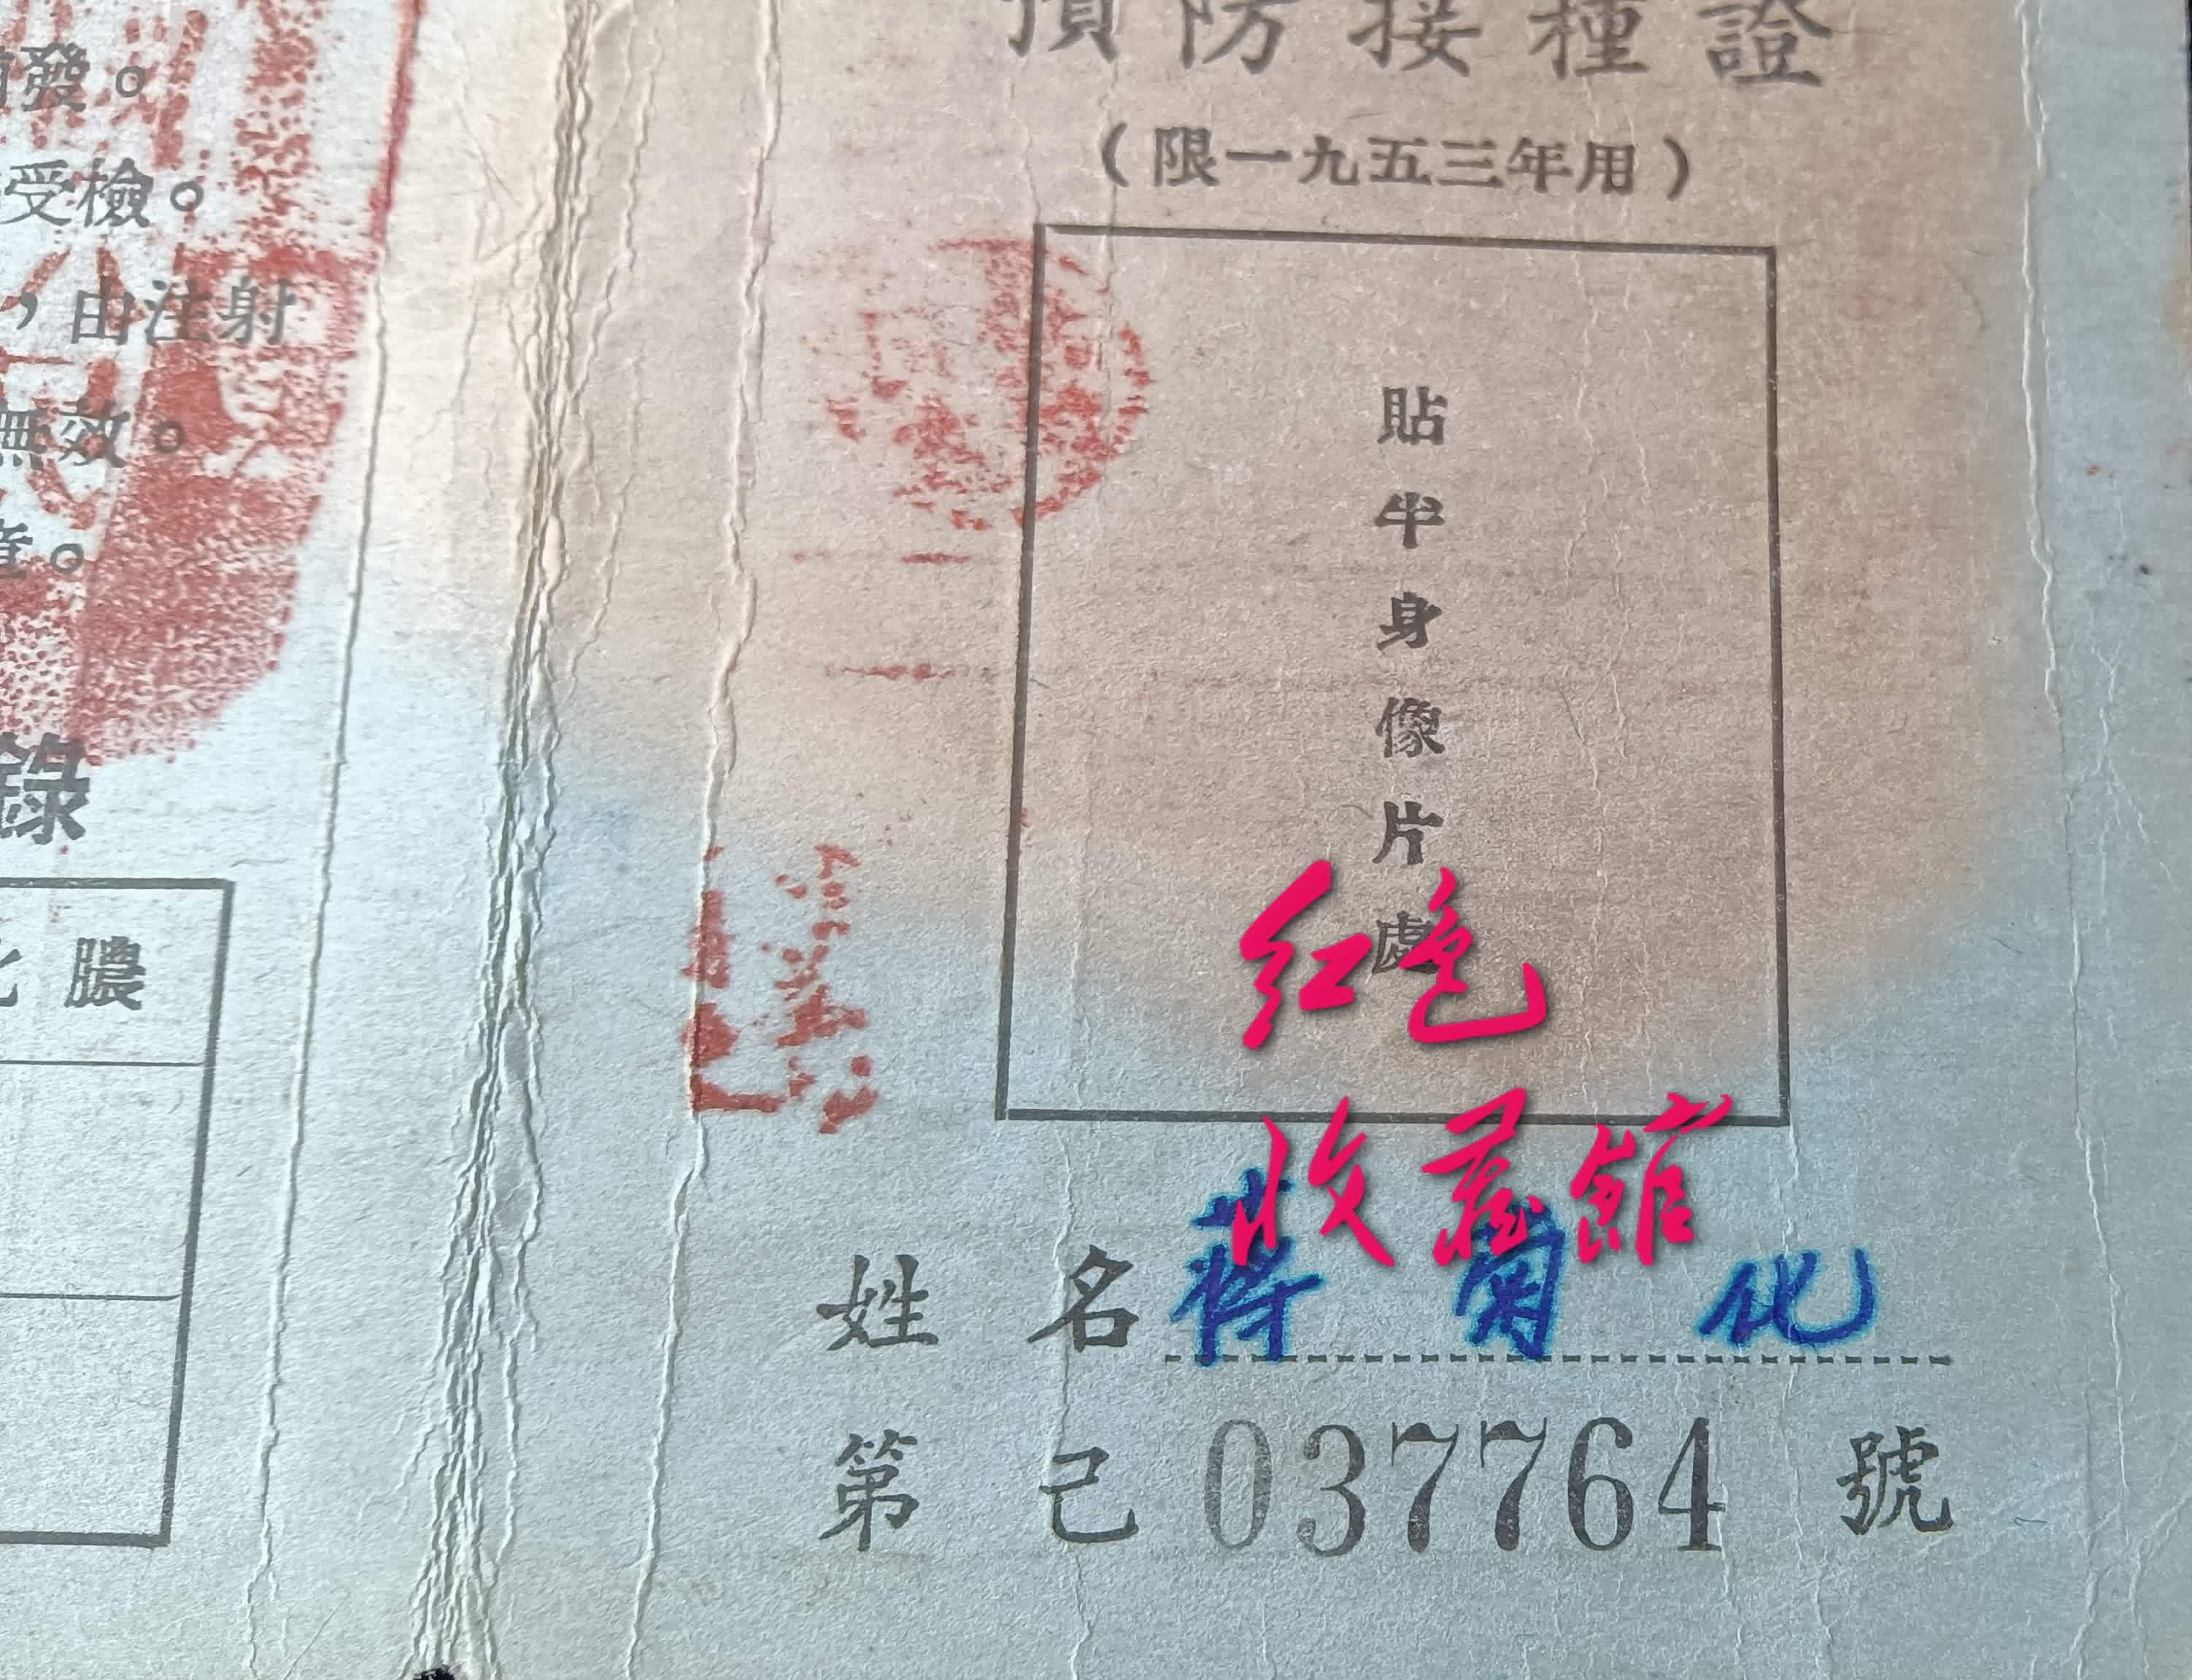 預防接種證
（限一九五三年用）
貼半身像片處
红色
收藏館
姓名蔣菊化
第己037764號
發。
受檢。
，由注射
無效。
查。
錄
化膿